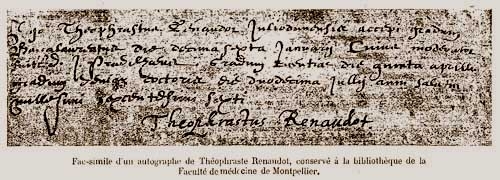 Ego Theophrastus Renaudot Juliodunensis accepi gradum
Baccalaureatus die decima septa Januarij moderator
gradum die quinta aprilis
gradum doctoris die duodecima Julij anni
millesimi sexcentesimi sexti
Theophrastus Renaudot.
Fac-simile d'un autographe de Théophraste Renaudot, conservé à la bibliothèque de la
Faculté de médecine de Montpellier.